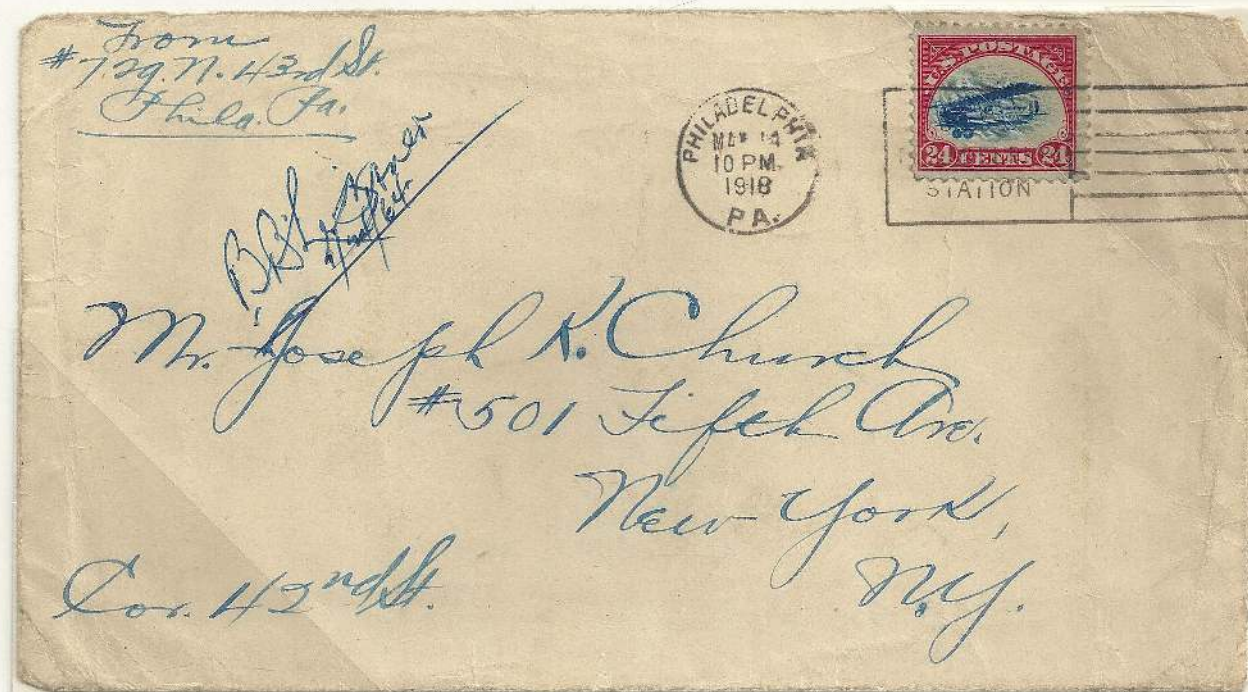 From
#729. N. 43rd St.
Phila. Pa.
PHILADELPHIA
MAY 14
10 PM
1918
PA.
U.S. POSTAGE
24 CENTS 24
STATION
Mr. Joseph K. Church
#501 Fifth Ave.
New York,
N.Y.
Cor. 42nd St.